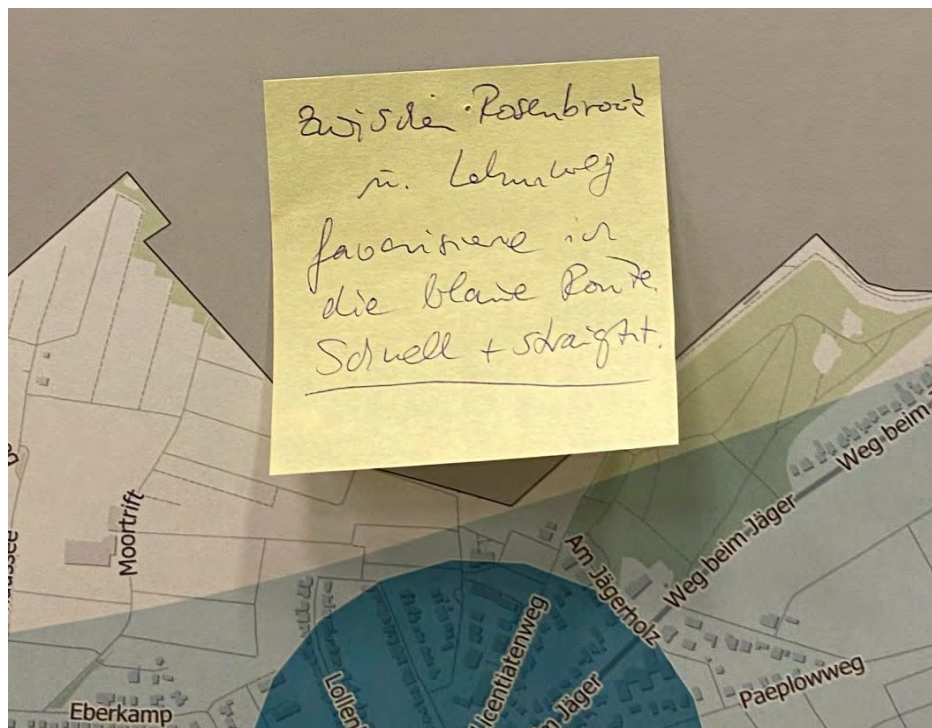 Zwischen Rosenbrook
u. Lehmweg
favorisiere ich
die blaue Route.
Schnell + straight.
Moortrift
Weg beim
Weg beim Jäger
Am Jägerholz
Paeplowweg
Eberkamp